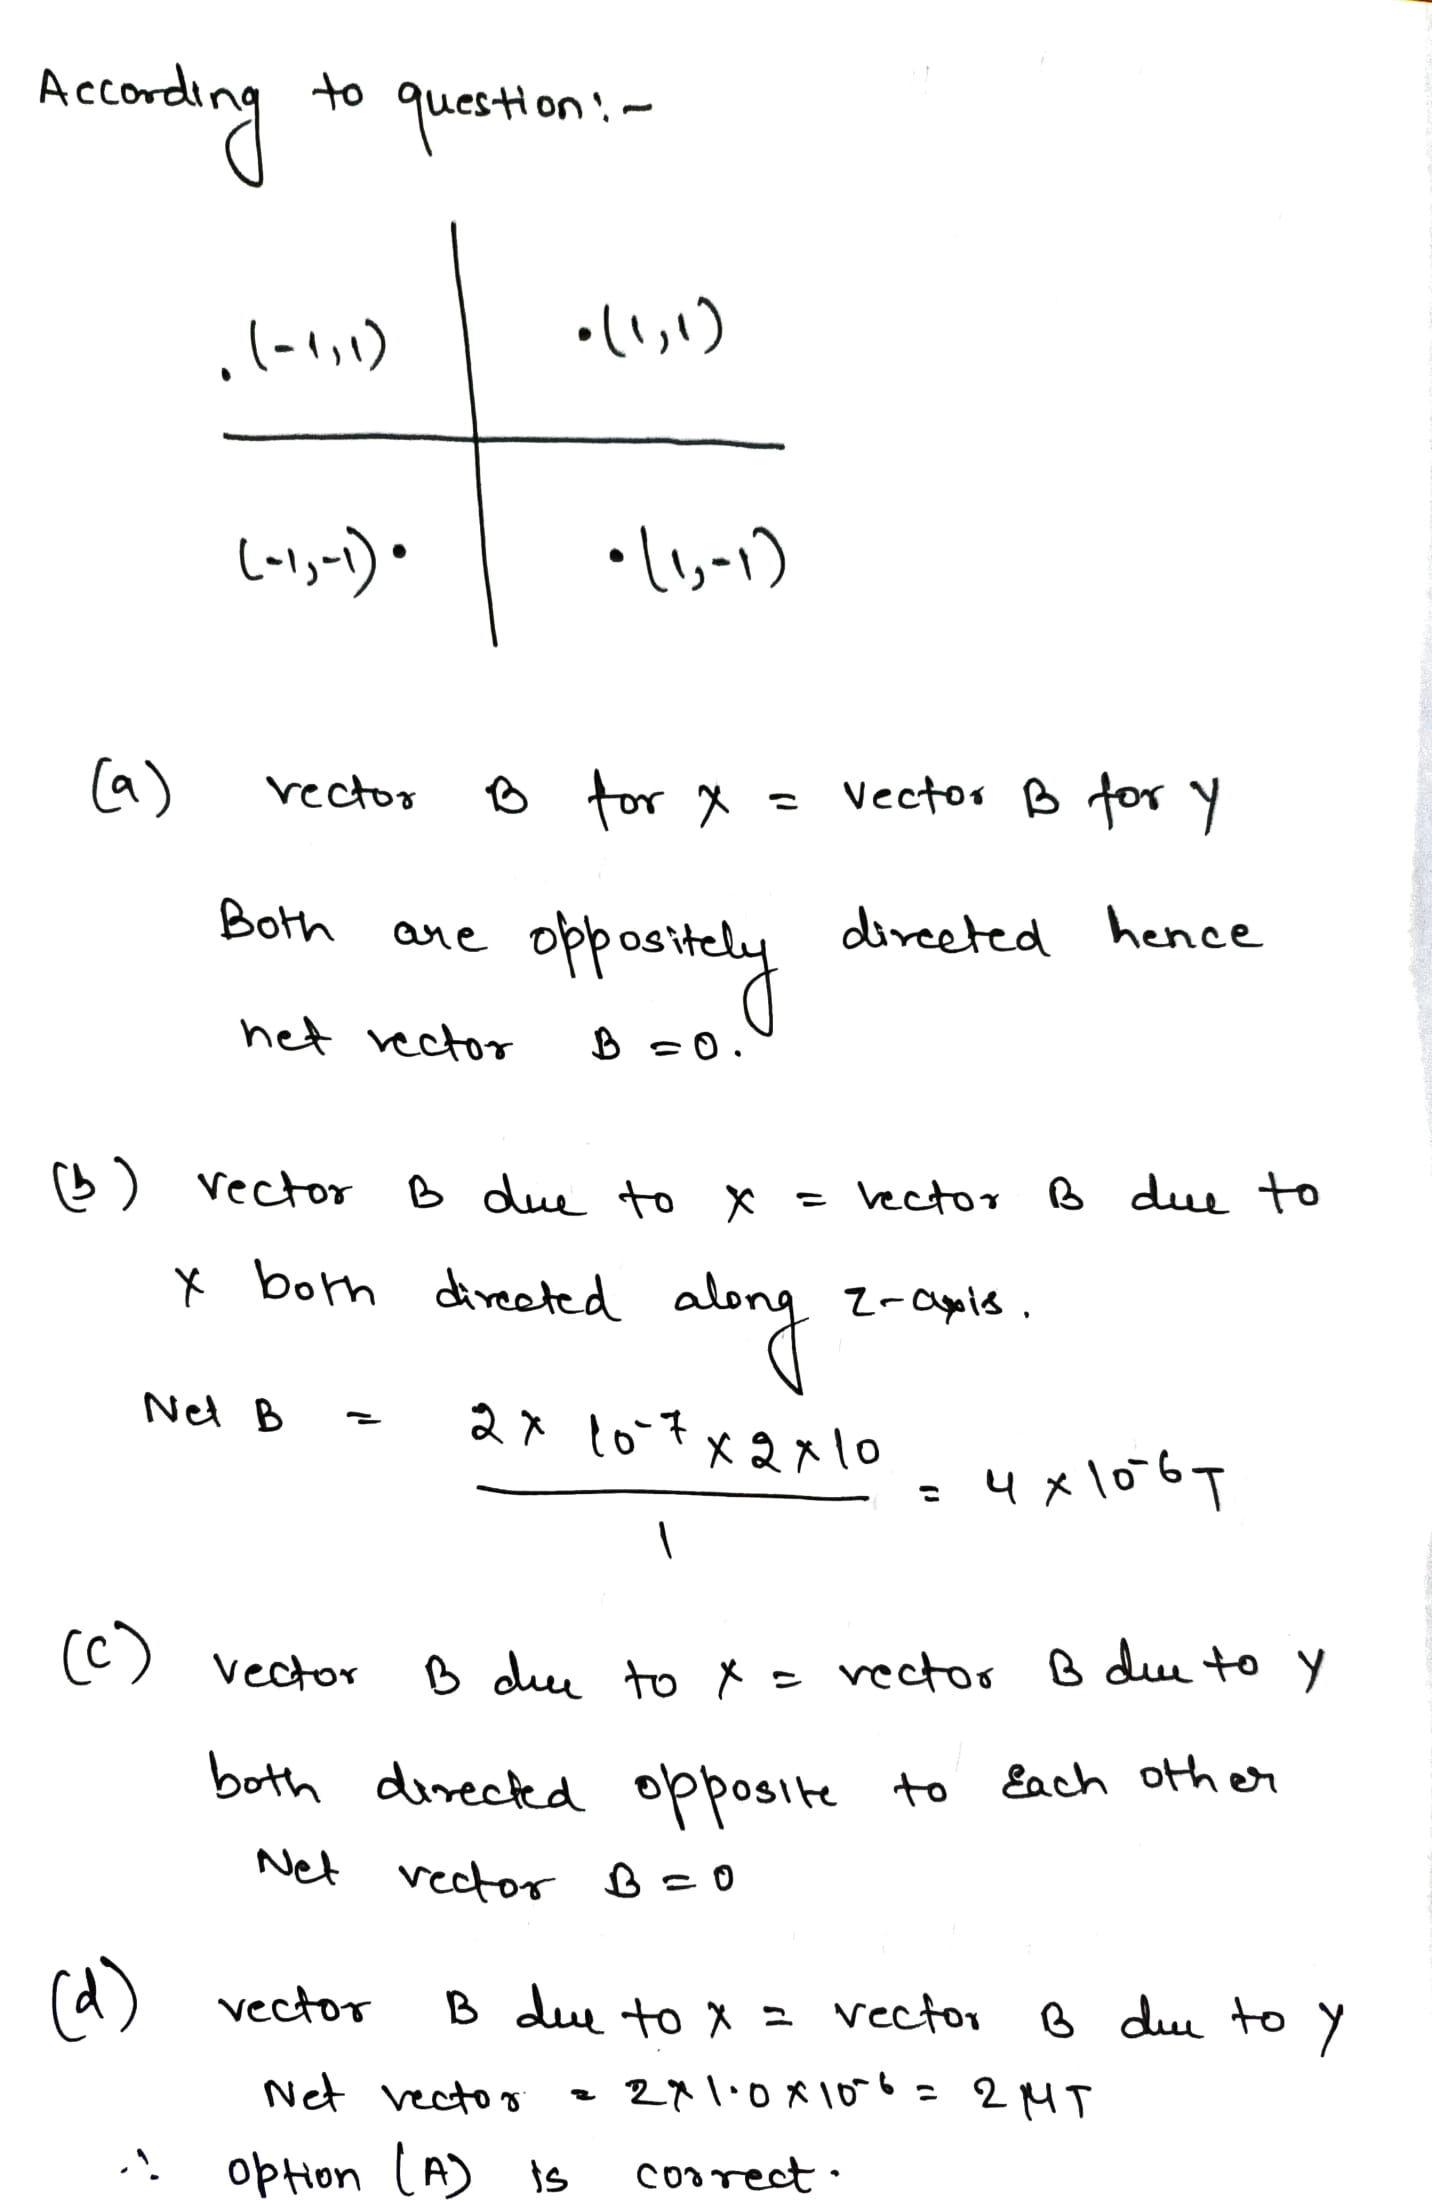 According to question:-
.(-1,1) .(1,1)
(-1,-1). .(1,-1)
(a) vector B for x = vector B for y
Both are oppositely directed hence
net vector B = 0.
(b) vector B due to x = vector B due to
x both directed along z-axis.
Net B = 2 × 10⁻⁷ × 2 × 10 / 1 = 4 × 10⁻⁶ T
(c) vector B due to x = vector B due to y
both directed opposite to Each other
Net vector B = 0
(d) vector B due to x = vector B due to y
Net vector = 2 × 1.0 × 10⁻⁶ = 2 μT
∴ option (A) is correct.